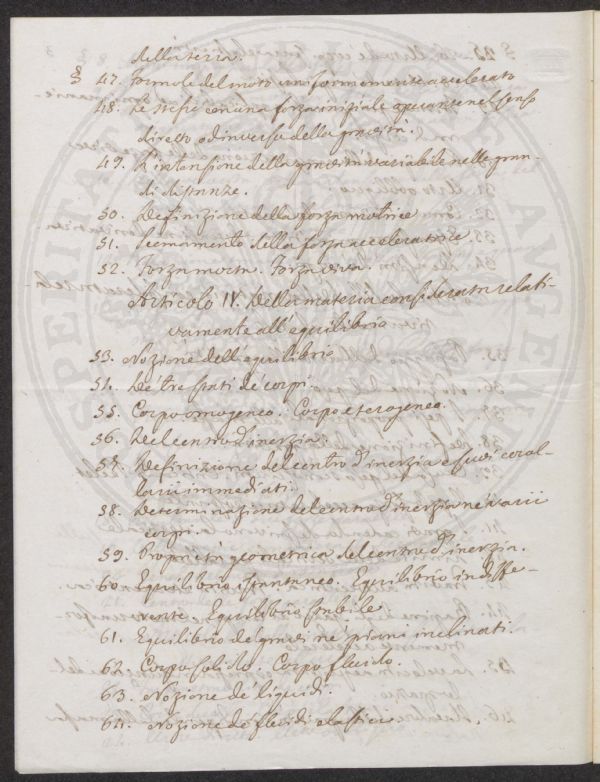 della teria.
§ 47. Formole del moto uniformemente accelerato
48. Le stesse con una forza iniziale operante nel senso
diretto od inverso della gravità.
49. L'intensione della gravità variabile nelle gran-
di distanze.
50. Definizione della forza motrice
51. della forza acceleratrice
52. Forza morta. Forza viva.
Articolo IV. Della materia considerata relati-
vamente all'equilibrio
53. Nozione dell'equilibrio
54. De' tre stati de' corpi
55. Corpo omogeneo. Corpo eterogeneo.
56. Del centro d'inerzia.
57. Definizione del centro d'inerzia e suoi corol-
larii immediati.
58. Determinazione del centro d'inerzia ne' varii
corpi.
59. Proprietà geometrica del centro d'inerzia.
60. Equilibrio istantaneo. Equilibrio indiffe-
rente. Equilibrio stabile.
61. Equilibrio de' gravi ne' piani inclinati.
62. Corpo solido. Corpo fluido.
63. Nozione de' liquidi.
64. Nozione de' fluidi elastici.